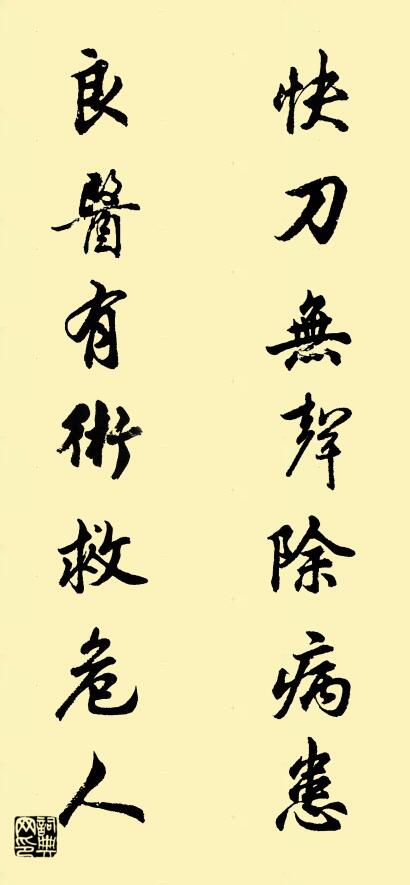 快刀無聲除病患
良醫有術救危人
詞典网印